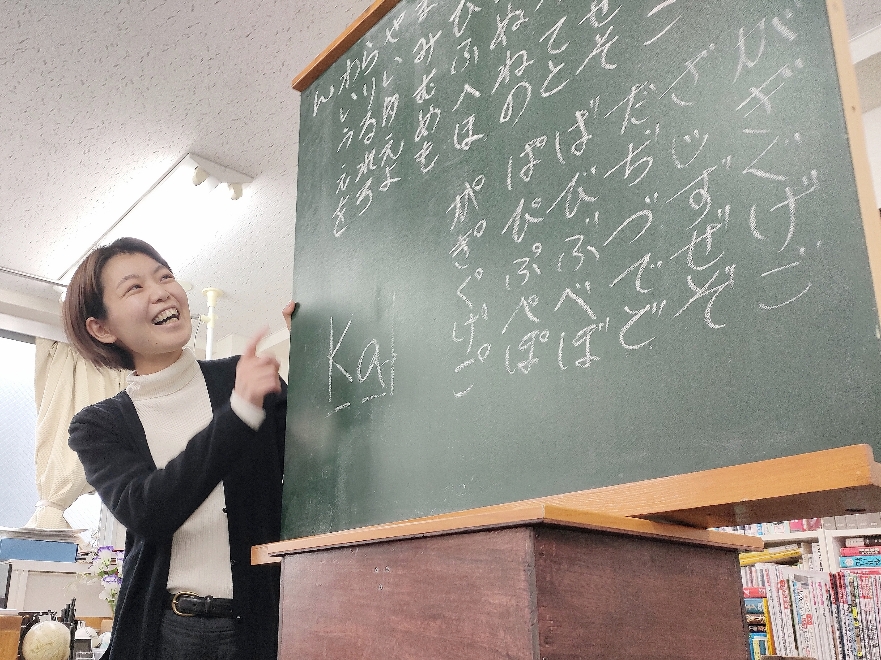 こ
せそ
てと
ぬねの
ひふへほ
まみむめも
やいゆえよ
らりるれろ
わいうえを
ん
がぎぐげご
ざじずぜぞ
だぢづでど
ばびぶべぼ
ぱぴぷぺぽ
か゚き゚く゚け゚こ゚
Ka